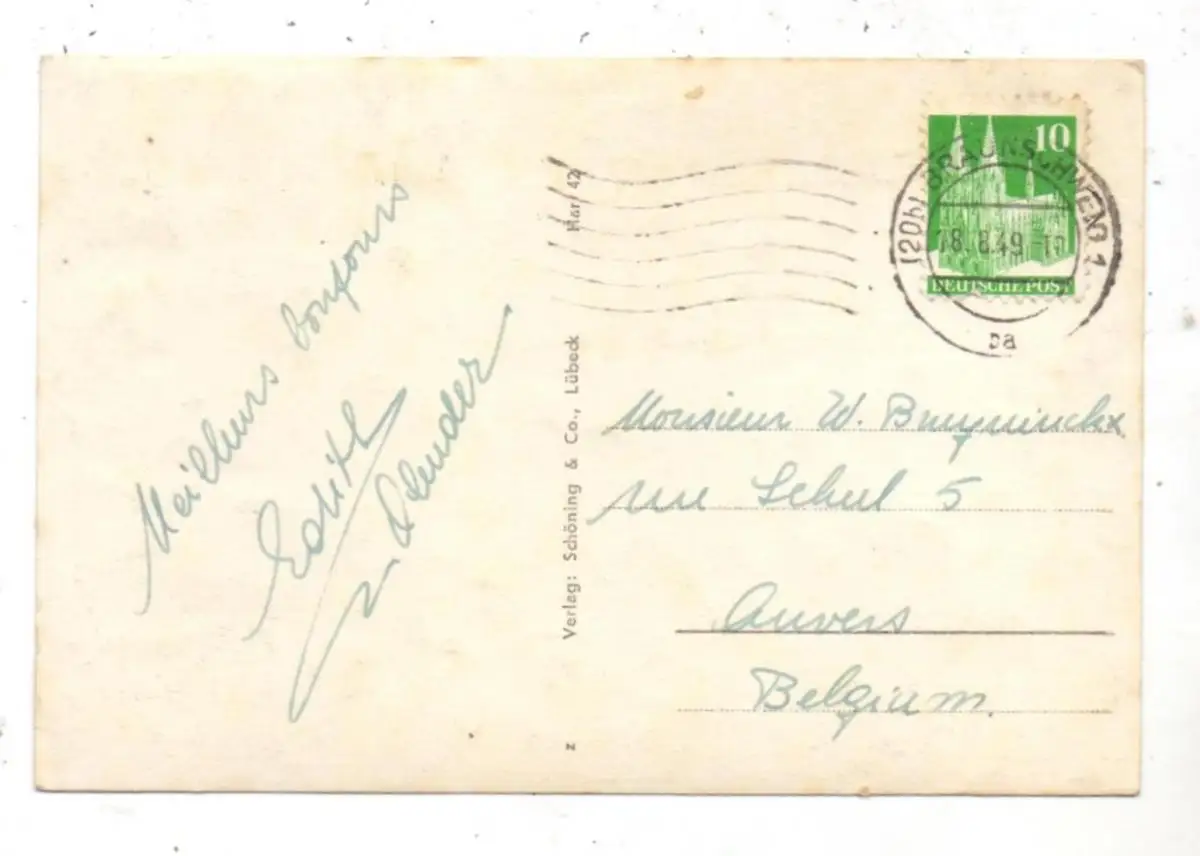 Meilleurs bonjours
Edith
v. Olmuder
Verlag: Schöning & Co., Lübeck
Har 42
z
10
DEUTSCHE POST
(20b) BRAUNSCHWEIG 1
18.8.49
ba
Monsieur W. Bruyninckx
rue Schul 5
Anvers
Belgium.